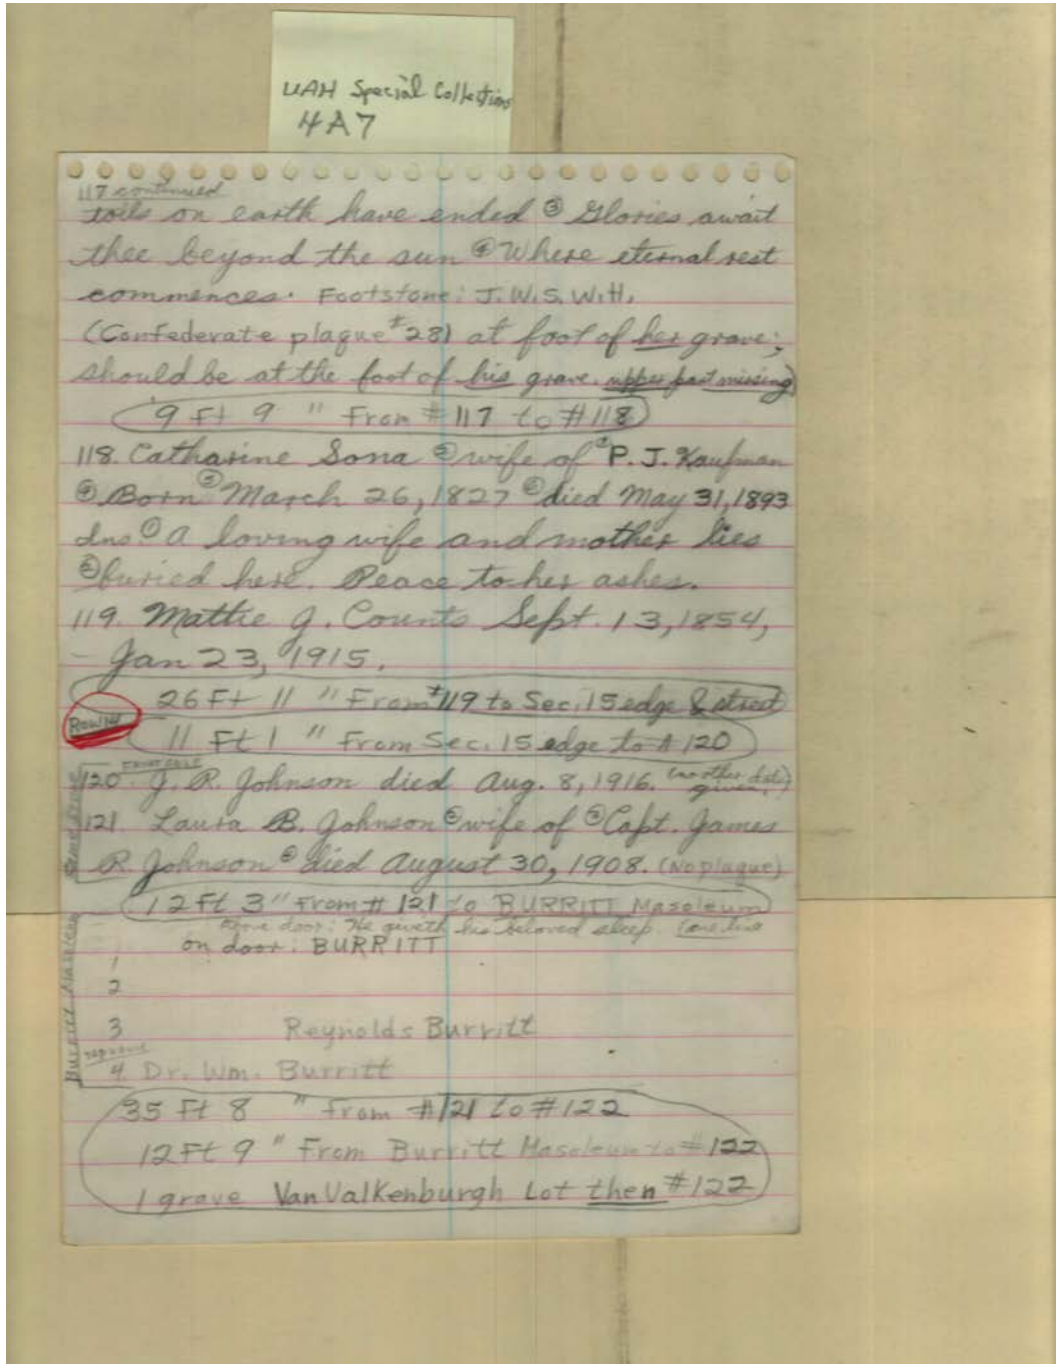 UAH Special Collections
4A7
117 continued
toils on earth have ended ③ Glories await
thee beyond the sun ④ Where eternal rest
commences. Footstone: J.W.S. W.H.
(Confederate plaque #28) at foot of her grave;
should be at the foot of his grave. upper part missing)
9 Ft 9 " From #117 to #118
118. Catharine Sona ② wife of ③ P.J. Kaufman
④ Born ⑤ March 26, 1827 ⑥ died May 31, 1893
Ins. ① A loving wife and mother lies
② buried here. Peace to her ashes.
119. Mattie J. Counts Sept. 13, 1854,
- Jan 23, 1915.
26 Ft 11 " From #119 to Sec. 15 edge & street
Row
11 Ft 1 " From Sec. 15 edge to # 120
120. J. R. Johnson died Aug. 8, 1916. (no other date given.)
121. Laura B. Johnson ② wife of ③ Capt. James
R. Johnson ④ died August 30, 1908. (No plaque)
12 Ft 3 " From # 121 to BURRITT Masoleum
above door: He giveth his beloved sleep. (one line
on door: BURRITT
Burritt Masoleum
1
2
3 Reynolds Burritt
4. Dr. Wm. Burritt
35 Ft 8 " From #121 to #122
12 Ft 9 " From Burritt Masoleum to #122
1 grave Van Valkenburgh Lot then #122